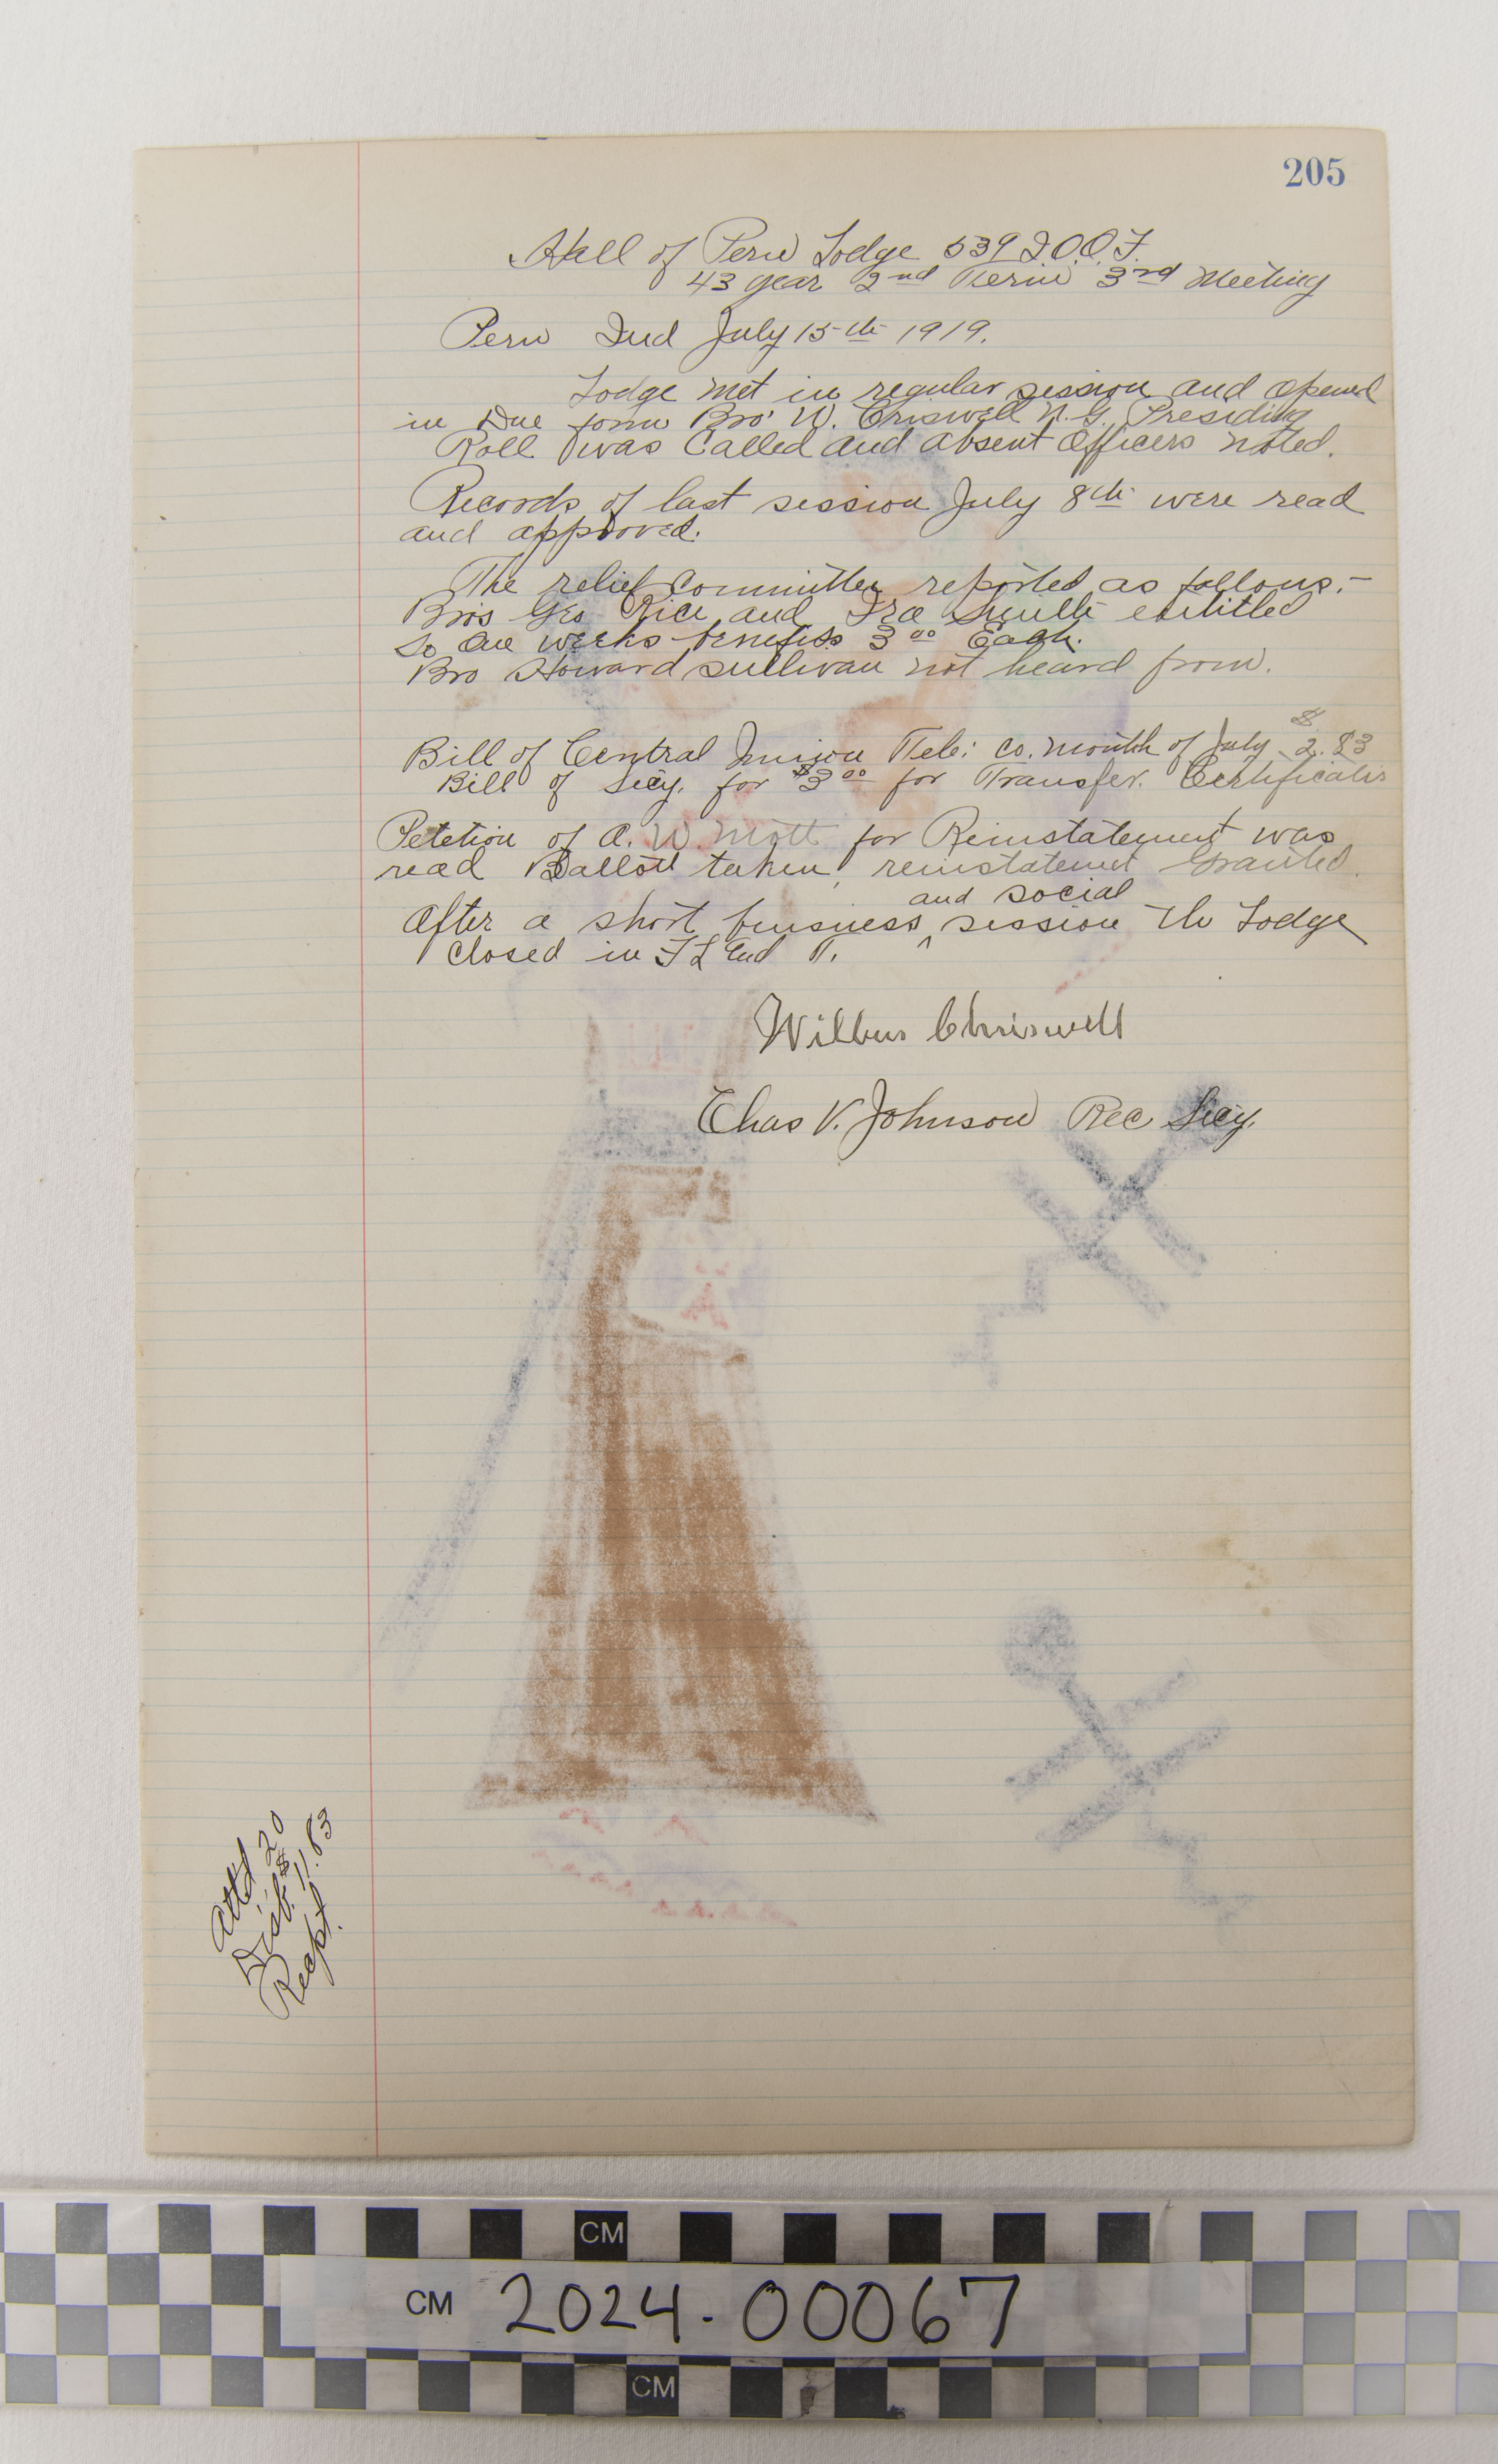 205
Hall of Peru Lodge 539 I.O.O.F.
43 year 2nd Term 3rd Meeting
Peru Ind July 15th 1919.
Lodge met in regular session and opened
in Due form Bro' W. Criswell N.G. Presiding
Roll was Called and absent Officers noted.
Records of last session July 8th were read
and approved.
The relief Committee reported as follows:-
Bros Geo Rice and Ira Smith entitled
to one weeks benefits 3 00 Each.
Bro Howard Sullivan not heard from.
Bill of Central Union Tele: Co. month of July $2.83
Bill of Secy. for $3 00 for Transfer. Certificates
Petetion of A. W. Mott for Reinstatement was
read Ballott taken, reinstatemet Granted.
and social
After a short business ^ session the Lodge
Closed in F L and T.
Wilbur Chriswell
Chas V. Johnson Rec Secy.
Attd 20
Disb. $11.83
Recpt.
CM
CM 2024-00067
CM